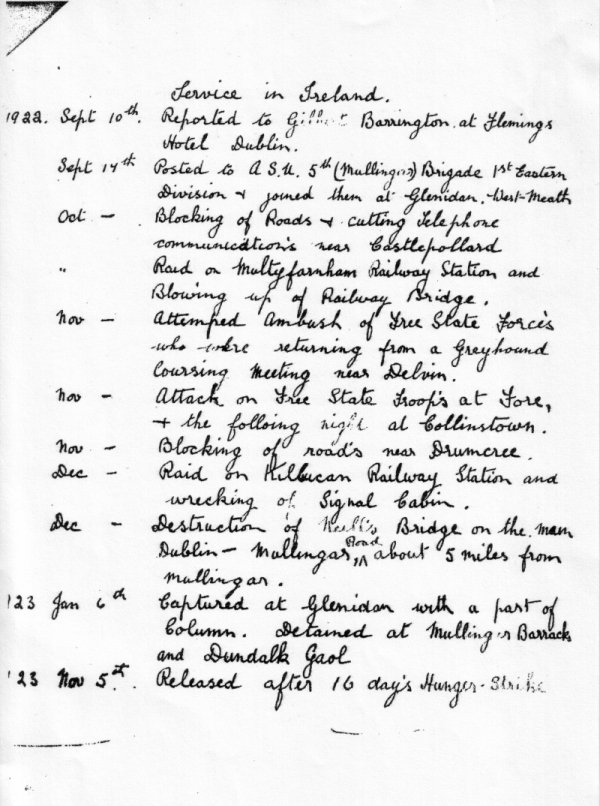 Service in Ireland.
1922. Sept 10th. Reported to Gilbert Barrington at Flemings
Hotel Dublin.
Sept 14th Posted to A.S.U. 5th (Mullingar) Brigade 1st Eastern
Division & joined them at Glenidan. West-Meath
Oct – Blocking of Roads & cutting Telephone
communication's near Castlepollard
" Raid on Multyfarnham Railway Station and
Blowing up of Railway Bridge.
Nov – Attemped Ambush of Free State Force's
who were returning from a Greyhound
Coursing Meeting near Delvin.
Nov – Attack on Free State Troop's at Fore,
& the folloing night at Collinstown.
Nov – Blocking of road's near Drumcree.
Dec – Raid on Killucan Railway Station and
wrecking of Signal Cabin.
Dec – Destruction of Bridge on the main
Dublin – Mullingar Road about 5 miles from
Mullingar.
'23 Jan 6th Captured at Glenidan with a part of
Column. Detained at Mullingar Barracks
and Dundalk Gaol
'23 Nov 5th. Released after 16 day's Hunger-Strike